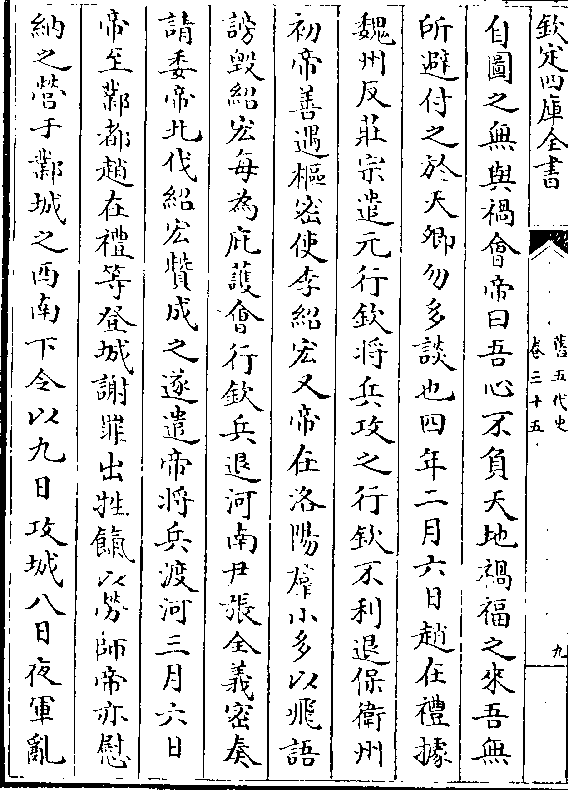 欽定四庫全書
舊五代史
卷三十五
九
自圖之無與禍會帝曰吾心不負天地禍福之來吾無
所避付之於天卿勿多談也四年二月六日趙在禮據
魏州反莊宗遣元行欽將兵攻之行欽不利退保衛州
初帝善遇樞密使李紹宏又帝在洛陽羣小多以飛語
謗毀紹宏每為庇護會行欽兵退河南尹張全義密奏
請委帝北伐紹宏贊成之遂遣帝將兵渡河三月六日
帝至鄴都趙在禮等登城謝罪出牲餼以勞師帝亦慰
納之營于鄴城之西南下令以九日攻城八日夜軍亂